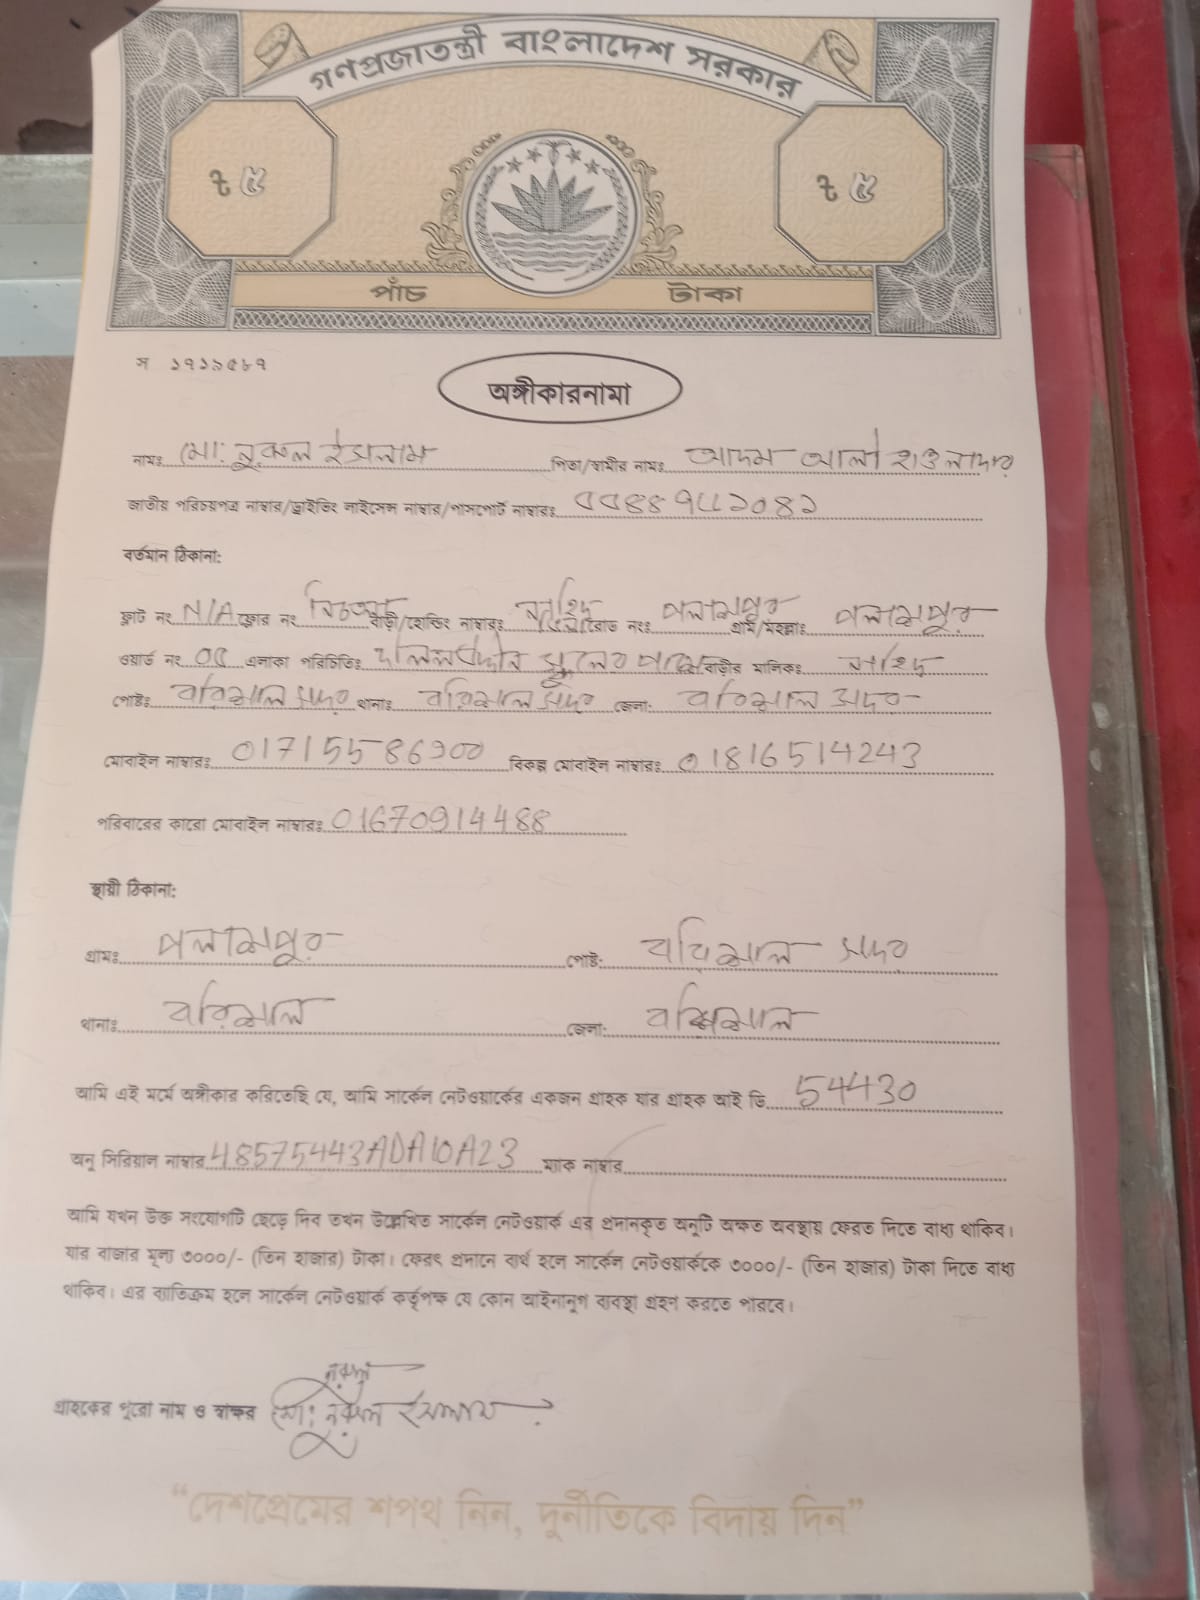 গণপ্রজাতন্ত্রী বাংলাদেশ সরকার
৳ ৫ ৳ ৫
পাঁচ টাকা
স ১৭১৯৫৮৭
অঙ্গীকারনামা
নামঃ মো: নুরুল ইসলাম পিতা/স্বামীর নামঃ আদম আলী হাওলাদার
জাতীয় পরিচয়পত্র নাম্বার/ড্রাইভিং লাইসেন্স নাম্বার/পাসপোর্ট নাম্বারঃ
বর্তমান ঠিকানা:
ফ্লাট নং N/A ফ্লোর নং নিচতলা বাড়ী/হোল্ডিং নাম্বারঃ রোড নংঃ পলাশপুর গ্রাম/মহল্লাঃ পলাশপুর
ওয়ার্ড নং ০৫ এলাকা পরিচিতিঃ স্কুলের পাশে বাড়ীর মালিকঃ নাহিদ
পোষ্টঃ বরিশাল সদর থানাঃ বরিশাল সদর জেলা: বরিশাল সদর
মোবাইল নাম্বারঃ 01715586900 বিকল্প মোবাইল নাম্বারঃ 01816514243
পরিবারের কারো মোবাইল নাম্বারঃ 01670914488
স্থায়ী ঠিকানা:
গ্রামঃ পলাশপুর পোষ্ট: বরিশাল সদর
থানাঃ বরিশাল জেলা: বরিশাল
আমি এই মর্মে অঙ্গীকার করিতেছি যে, আমি সার্কেল নেটওয়ার্কের একজন গ্রাহক যার গ্রাহক আই ডি 54430
অনু সিরিয়াল নাম্বার 48575443ADA10A23 ম্যাক নাম্বার
আমি যখন উক্ত সংযোগটি ছেড়ে দিব তখন উল্লেখিত সার্কেল নেটওয়ার্ক এর প্রদানকৃত অনুটি অক্ষত অবস্থায় ফেরত দিতে বাধ্য থাকিব।
যার বাজার মূল্য ৩০০০/- (তিন হাজার) টাকা। ফেরৎ প্রদানে ব্যর্থ হলে সার্কেল নেটওয়ার্ককে ৩০০০/- (তিন হাজার) টাকা দিতে বাধ্য
থাকিব। এর ব্যতিক্রম হলে সার্কেল নেটওয়ার্ক কর্তৃপক্ষ যে কোন আইনানুগ ব্যবস্থা গ্রহণ করতে পারবে।
গ্রাহকের পুরো নাম ও স্বাক্ষর মো: নুরুল ইসলাম
“দেশপ্রেমের শপথ নিন, দুর্নীতিকে বিদায় দিন”